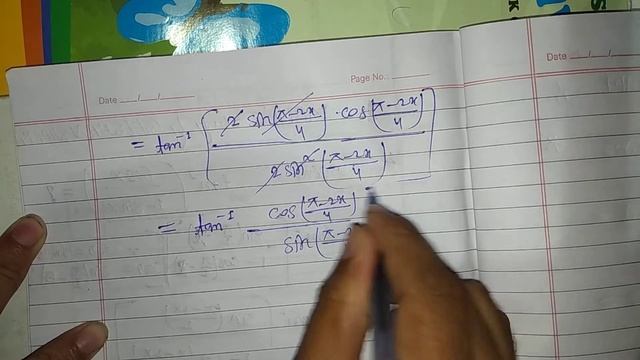 Page No.:
Date
Date
= tan⁻¹ [ 2 sin((π-2x)/4) · cos((π-2x)/4) / 2 sin²((π-2x)/4) ]
= tan⁻¹ cos((π-2x)/4) / sin(